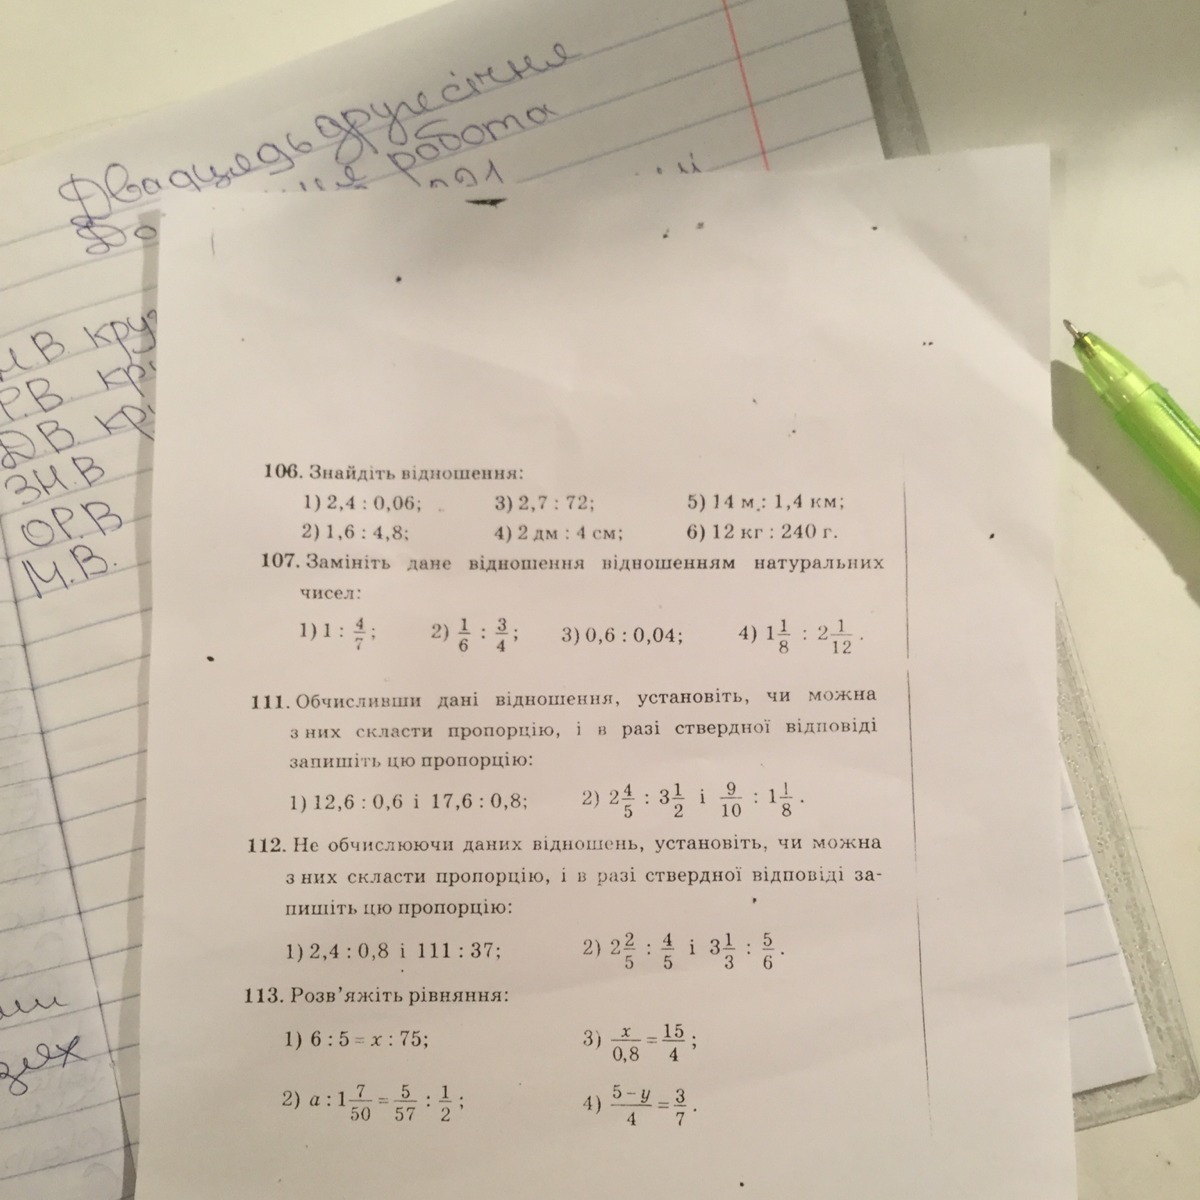 Двадцядь друге січня
робота
Н.В
Р.В.
ДВ
ЗН.В
ОР.В
М.В.
106. Знайдіть відношення:
1) 2,4 : 0,06; 3) 2,7 : 72; 5) 14 м : 1,4 км;
2) 1,6 : 4,8; 4) 2 дм : 4 см; 6) 12 кг : 240 г.
107. Замініть дане відношення відношенням натуральних
чисел:
1) 1 : 4/7; 2) 1/6 : 3/4; 3) 0,6 : 0,04; 4) 1 1/8 : 2 1/12.
111. Обчисливши дані відношення, установіть, чи можна
з них скласти пропорцію, і в разі ствердної відповіді
запишіть цю пропорцію:
1) 12,6 : 0,6 і 17,6 : 0,8; 2) 2 4/5 : 3 1/2 і 9/10 : 1 1/8.
112. Не обчислюючи даних відношень, установіть, чи можна
з них скласти пропорцію, і в разі ствердної відповіді за-
пишіть цю пропорцію:
1) 2,4 : 0,8 і 111 : 37; 2) 2 2/5 : 4/5 і 3 1/3 : 5/6.
113. Розв'яжіть рівняння:
1) 6 : 5 = x : 75; 3) x/0,8 = 15/4;
2) a : 1 7/50 = 5/57 : 1/2; 4) (5 – y)/4 = 3/7.